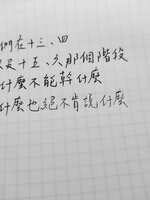 們在十三、四
是十五、六那個階段
什麼不能幹什麼
什麼也絕不肯說什麼